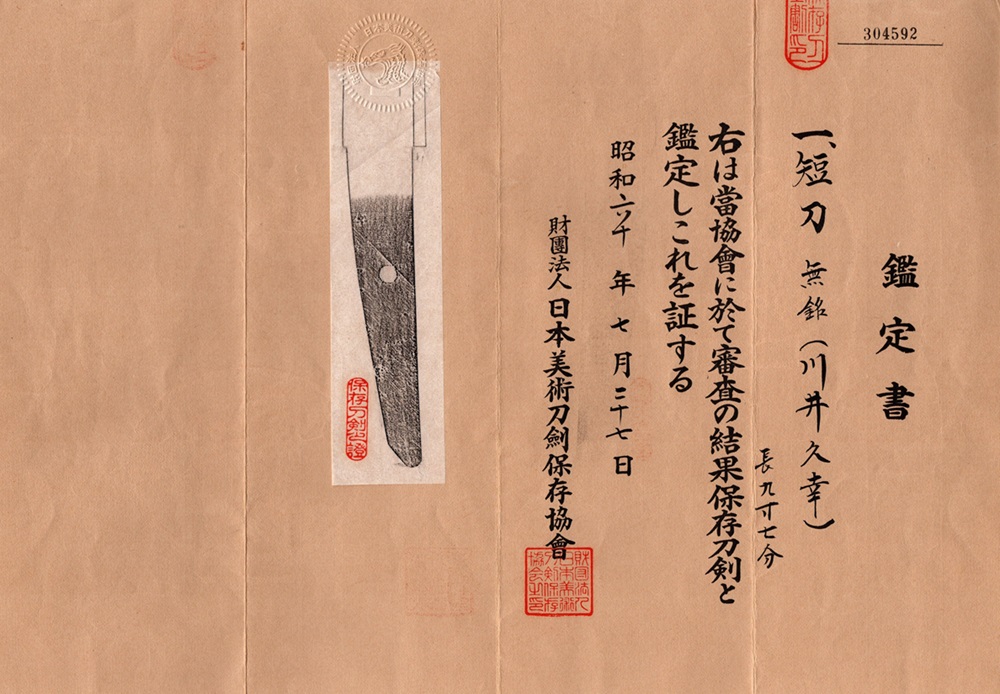 304592
鑑定書
一、短刀 無銘(川井久幸)
長九寸七分
右は當協會に於て審査の結果保存刀剣と
鑑定しこれを証する
昭和六十年七月二十七日
財團法人日本美術刀劍保存協會
財団法人日本美術刀剣保存協会之印
保存刀剣之證
日本美術刀